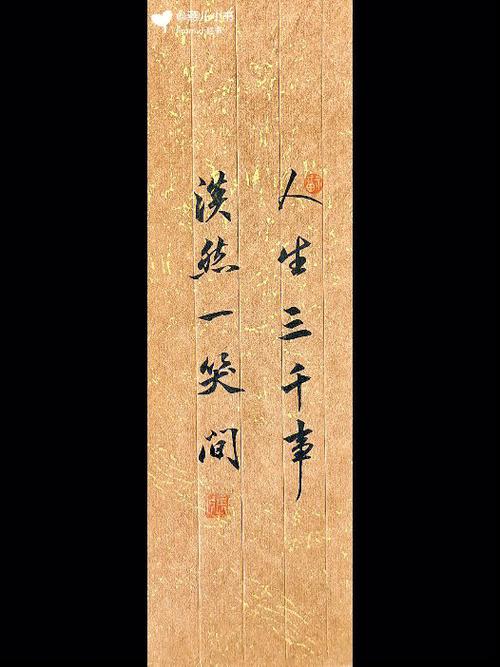 人生三千事
淡然一笑间